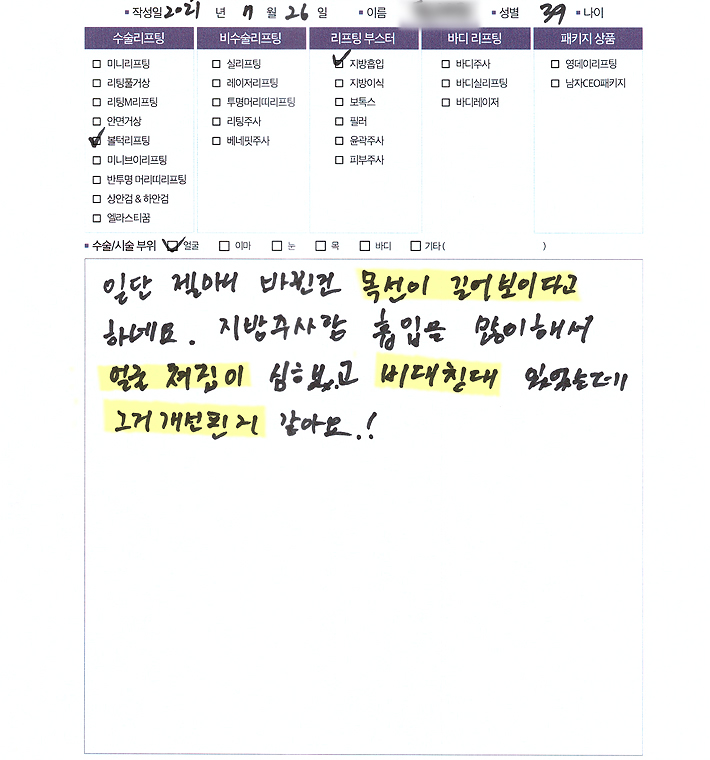 ▪ 작성일 2021 년 7 월 26 일 ▪ 이름 ▪ 성별 39 ▪ 나이
수술리프팅 비수술리프팅 리프팅 부스터 바디 리프팅 패키지 상품
미니리프팅 실리프팅 지방흡입 바디주사 영데이리프팅
리팅풀거상 레이저리프팅 지방이식 바디실리프팅 남자CEO패키지
리팅M리프팅 투명머리띠리프팅 보톡스 바디레이저
안면거상 리팅주사 필러
볼턱리프팅 베네핏주사 윤곽주사
미니브이리프팅 피부주사
반투명 머리띠리프팅
상안검 & 하안검
엘라스티꿈
▪ 수술/시술 부위 얼굴 이마 눈 목 바디 기타( )
일단 젤 바뀐건 목선이 길어보이다고
하네요. 지방주사랑 흡입을 많이해서
얼굴 쳐짐이 심했고 비대칭대 있었는데
그거 개선된거 같아요.!